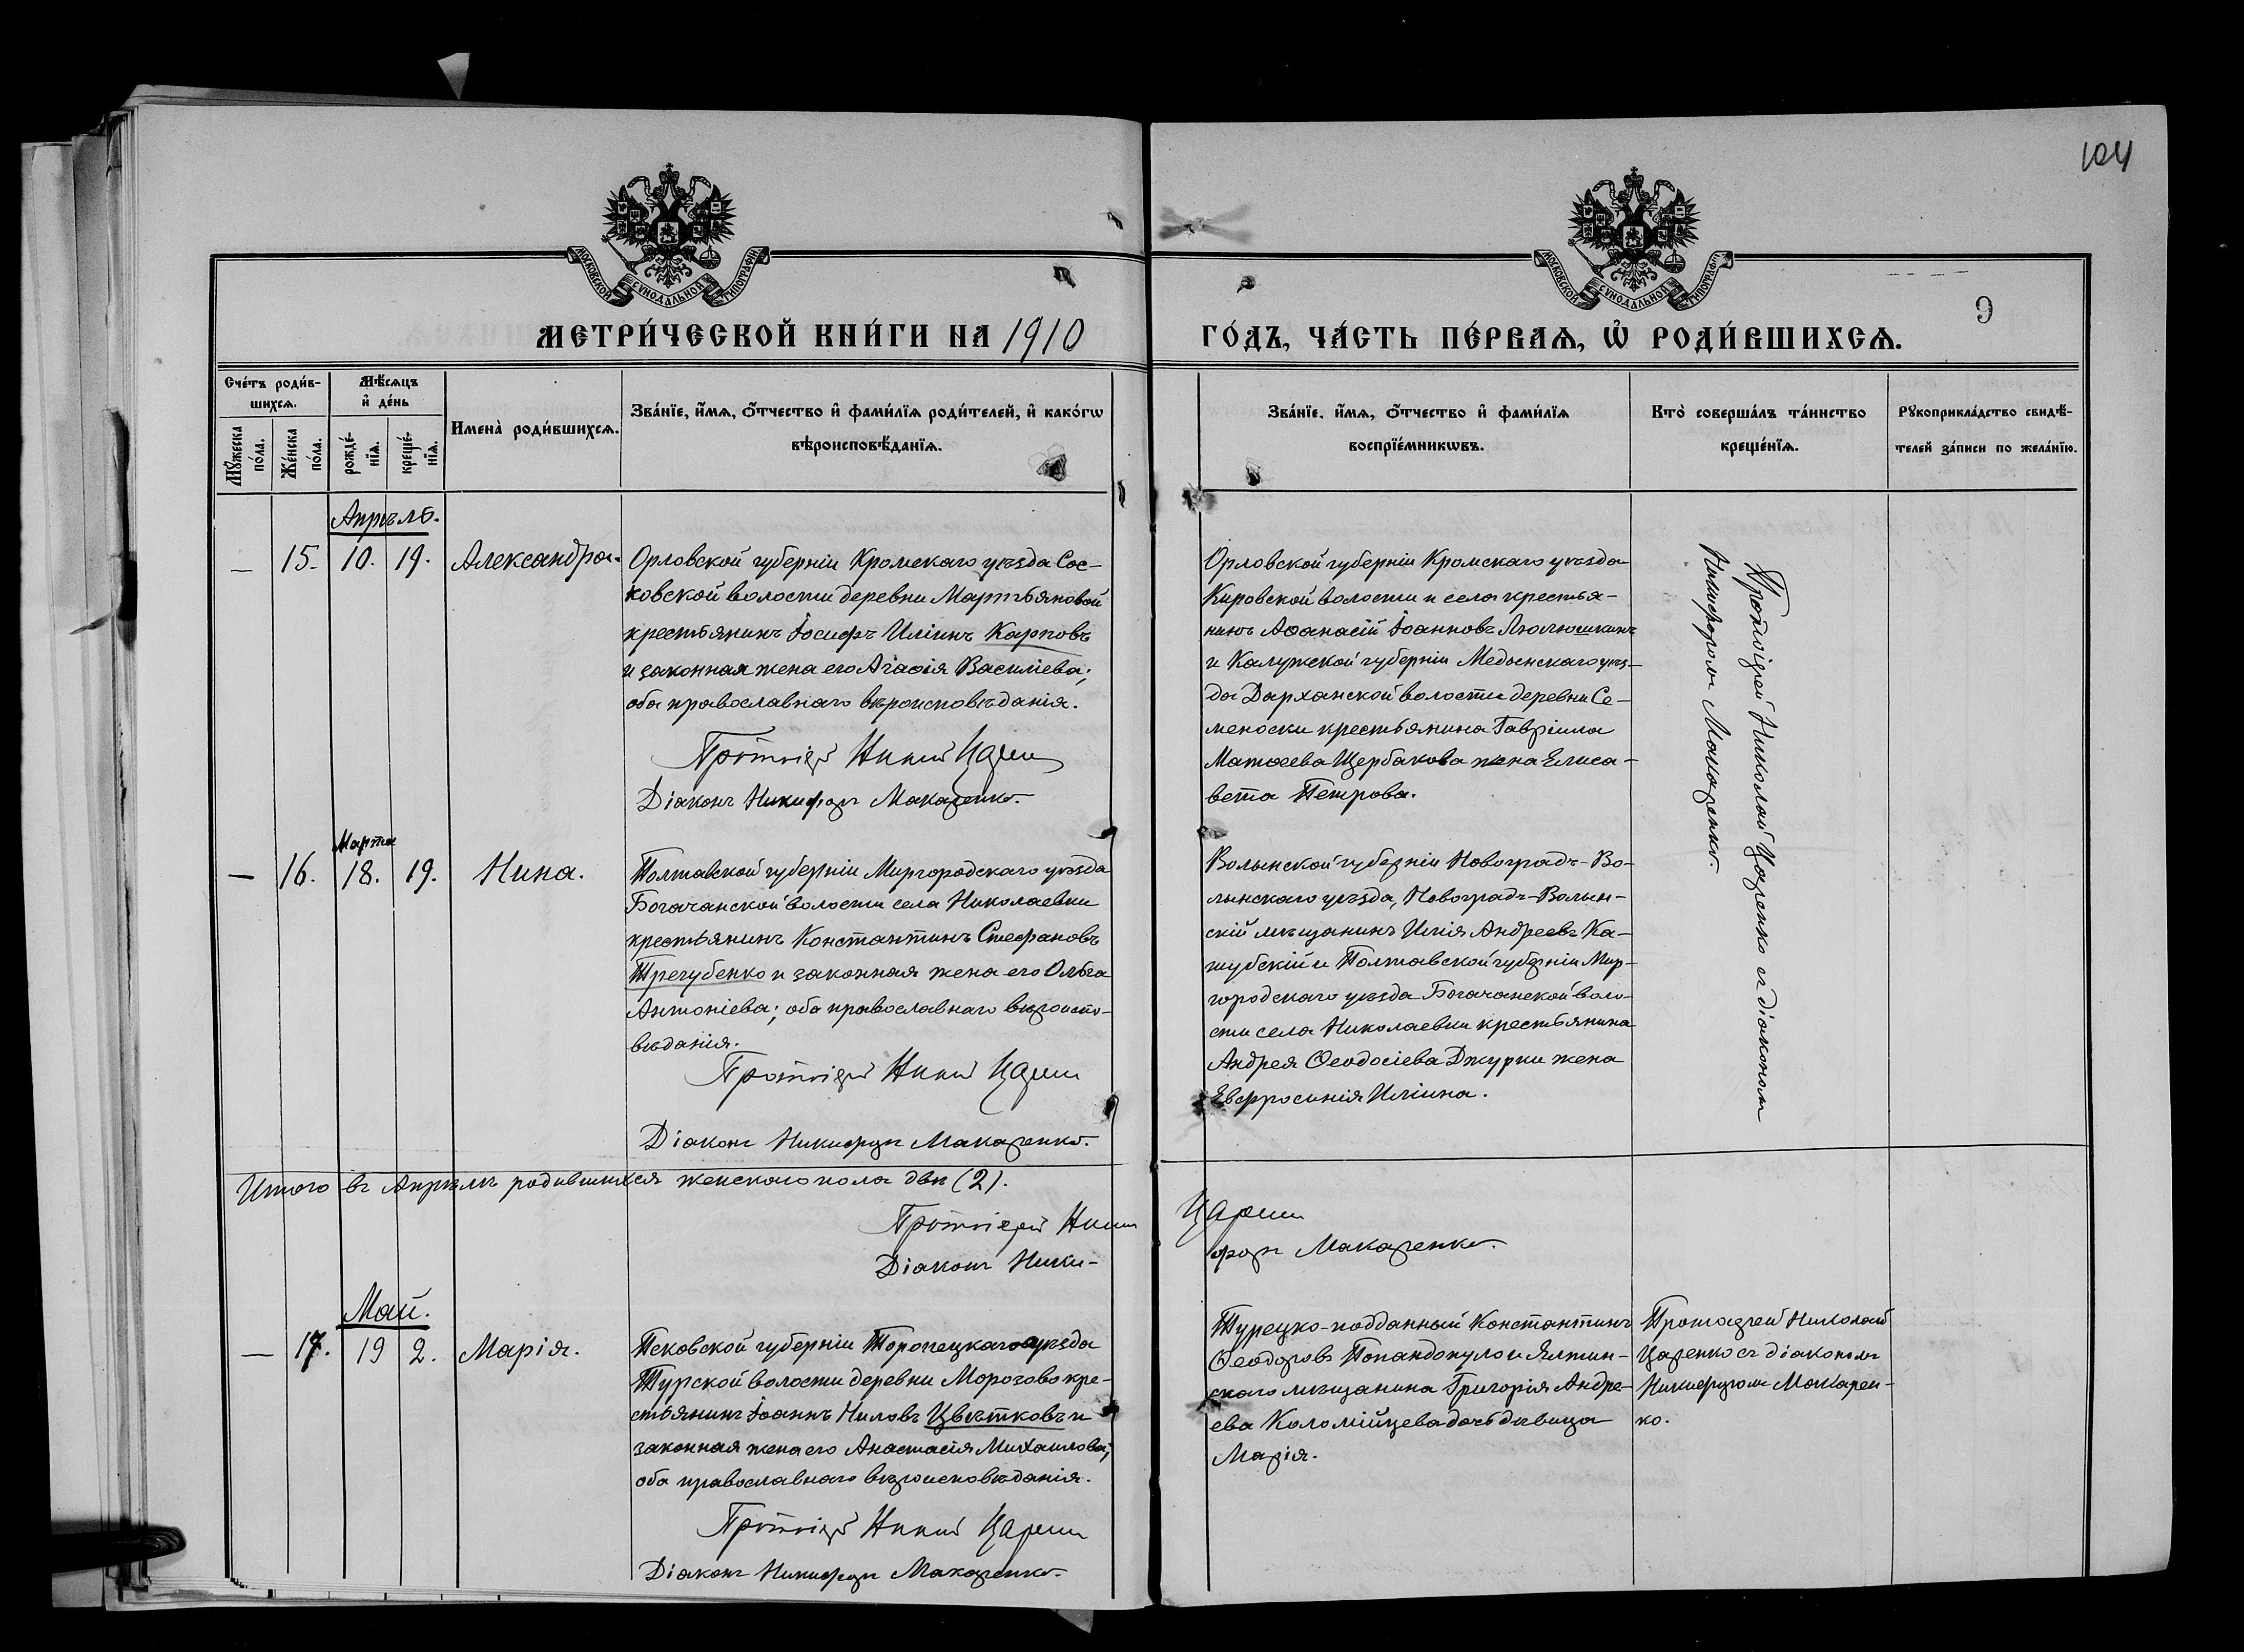 104
9
МОСКОВСКОЙ СУНОДАЛЬНОЙ ТИПОГРАФІИ
МОСКОВСКОЙ СУНОДАЛЬНОЙ ТИПОГРАФІИ
МЕТРИ́ЧЕСКОЙ КНИ́ГИ НА 1910
ГО́ДЪ, ЧА́СТЬ ПЕ́РВАѦ, Ѡ҆ РОДИ́ВШИХСѦ.
Сче́тъ роди́в-
шихсѧ.
Мѣ́сѧцъ
и҆ де́нь
Мꙋ́жеска
по́ла.
Же́нска
по́ла.
рожде́-
нїѧ.
креще́-
нїѧ.
Имена̀ роди́вшихсѧ.
Зва́нїе, и҆́мѧ, ѻ҆́тчество и҆ фами́лїѧ роди́телей, и҆ како́гѡ
вѣроисповѣ́данїѧ.
Зва́нїе, и҆́мѧ, ѻ҆́тчество и҆ фами́лїѧ
воспрїе́мникѡвъ.
Кто̀ соверша́лъ та́инство
креще́нїѧ.
Рꙋкоприкла́дство свидѣ́-
телей за́писи по жела́нїю.
Апрѣль.
— 15. 10. 19. Александра.
Орловской губерніи Кромскаго уѣзда Сос-
ковской волости деревни Мартьяновой
крестьянинъ Іосифъ Иліинъ Карповъ
и законная жена его Агаѳія Василіева;
оба православнаго вѣроисповѣданія.
Протоіерей Никол Царен
Діаконъ Никифоръ Макаренко.
Орловской губерніи Кромскаго уѣзда
Кировской волости и села крестья-
нинъ Аѳанасій Іоанновъ Люлюшкинъ
и Калужской губерніи Медынскаго уѣз-
да Дарханской волости деревни Се-
меноски крестьянина Гавріила
Матѳеева Щербакова жена Елиса-
вета Петрова.
Протоіерей Николай Царенко съ діакономъ
Никифоромъ Макаренко.
Марта
— 16. 18. 19. Нина.
Полтавской губерніи Миргородскаго уѣзда
Богачанской волости села Николаевки
крестьянинъ Константинъ Стефановъ
Трегубенко и законная жена его Ольга
Антоніева; оба православнаго вѣроиспо-
вѣданія.
Протоіерей Никол Царен
Діаконъ Никифоръ Макаренко.
Волынской губерніи Новоградъ-Во-
лынскаго уѣзда, Новоградъ-Волын-
скій мѣщанинъ Илія Андреевъ Ка-
шубскій и Полтавской губерніи Мир-
городскаго уѣзда Богачанской воло-
сти села Николаевки крестьянина
Андрея Ѳеодосіева Джурки жена
Евфросинія Иліина.
Итого въ Апрѣлѣ родившихся женскаго пола двѣ (2).
Протоіерей Никол Царен
Діаконъ Ники-форъ Макаренко.
Май.
— 17. 19 2. Марія.
Псковской губерніи Торопецкаго уѣзда
Турской волости деревни Морозово кре-
стьянинъ Іоаннъ Ниловъ Цвѣтковъ и
законная жена его Анастасія Михаилова;
оба православнаго вѣроисповѣданія.
Протоіерей Никол Царен
Діаконъ Никифоръ Макаренко.
Турецко-подданный Константинъ
Ѳеодоровъ Попандопуло и Ялтин-
скаго мѣщанина Григорія Андре-
ева Коломійцева дочь дѣвица
Марія.
Протоіерей Николай
Царенко съ діакономъ
Никифоромъ Макарен-
ко.